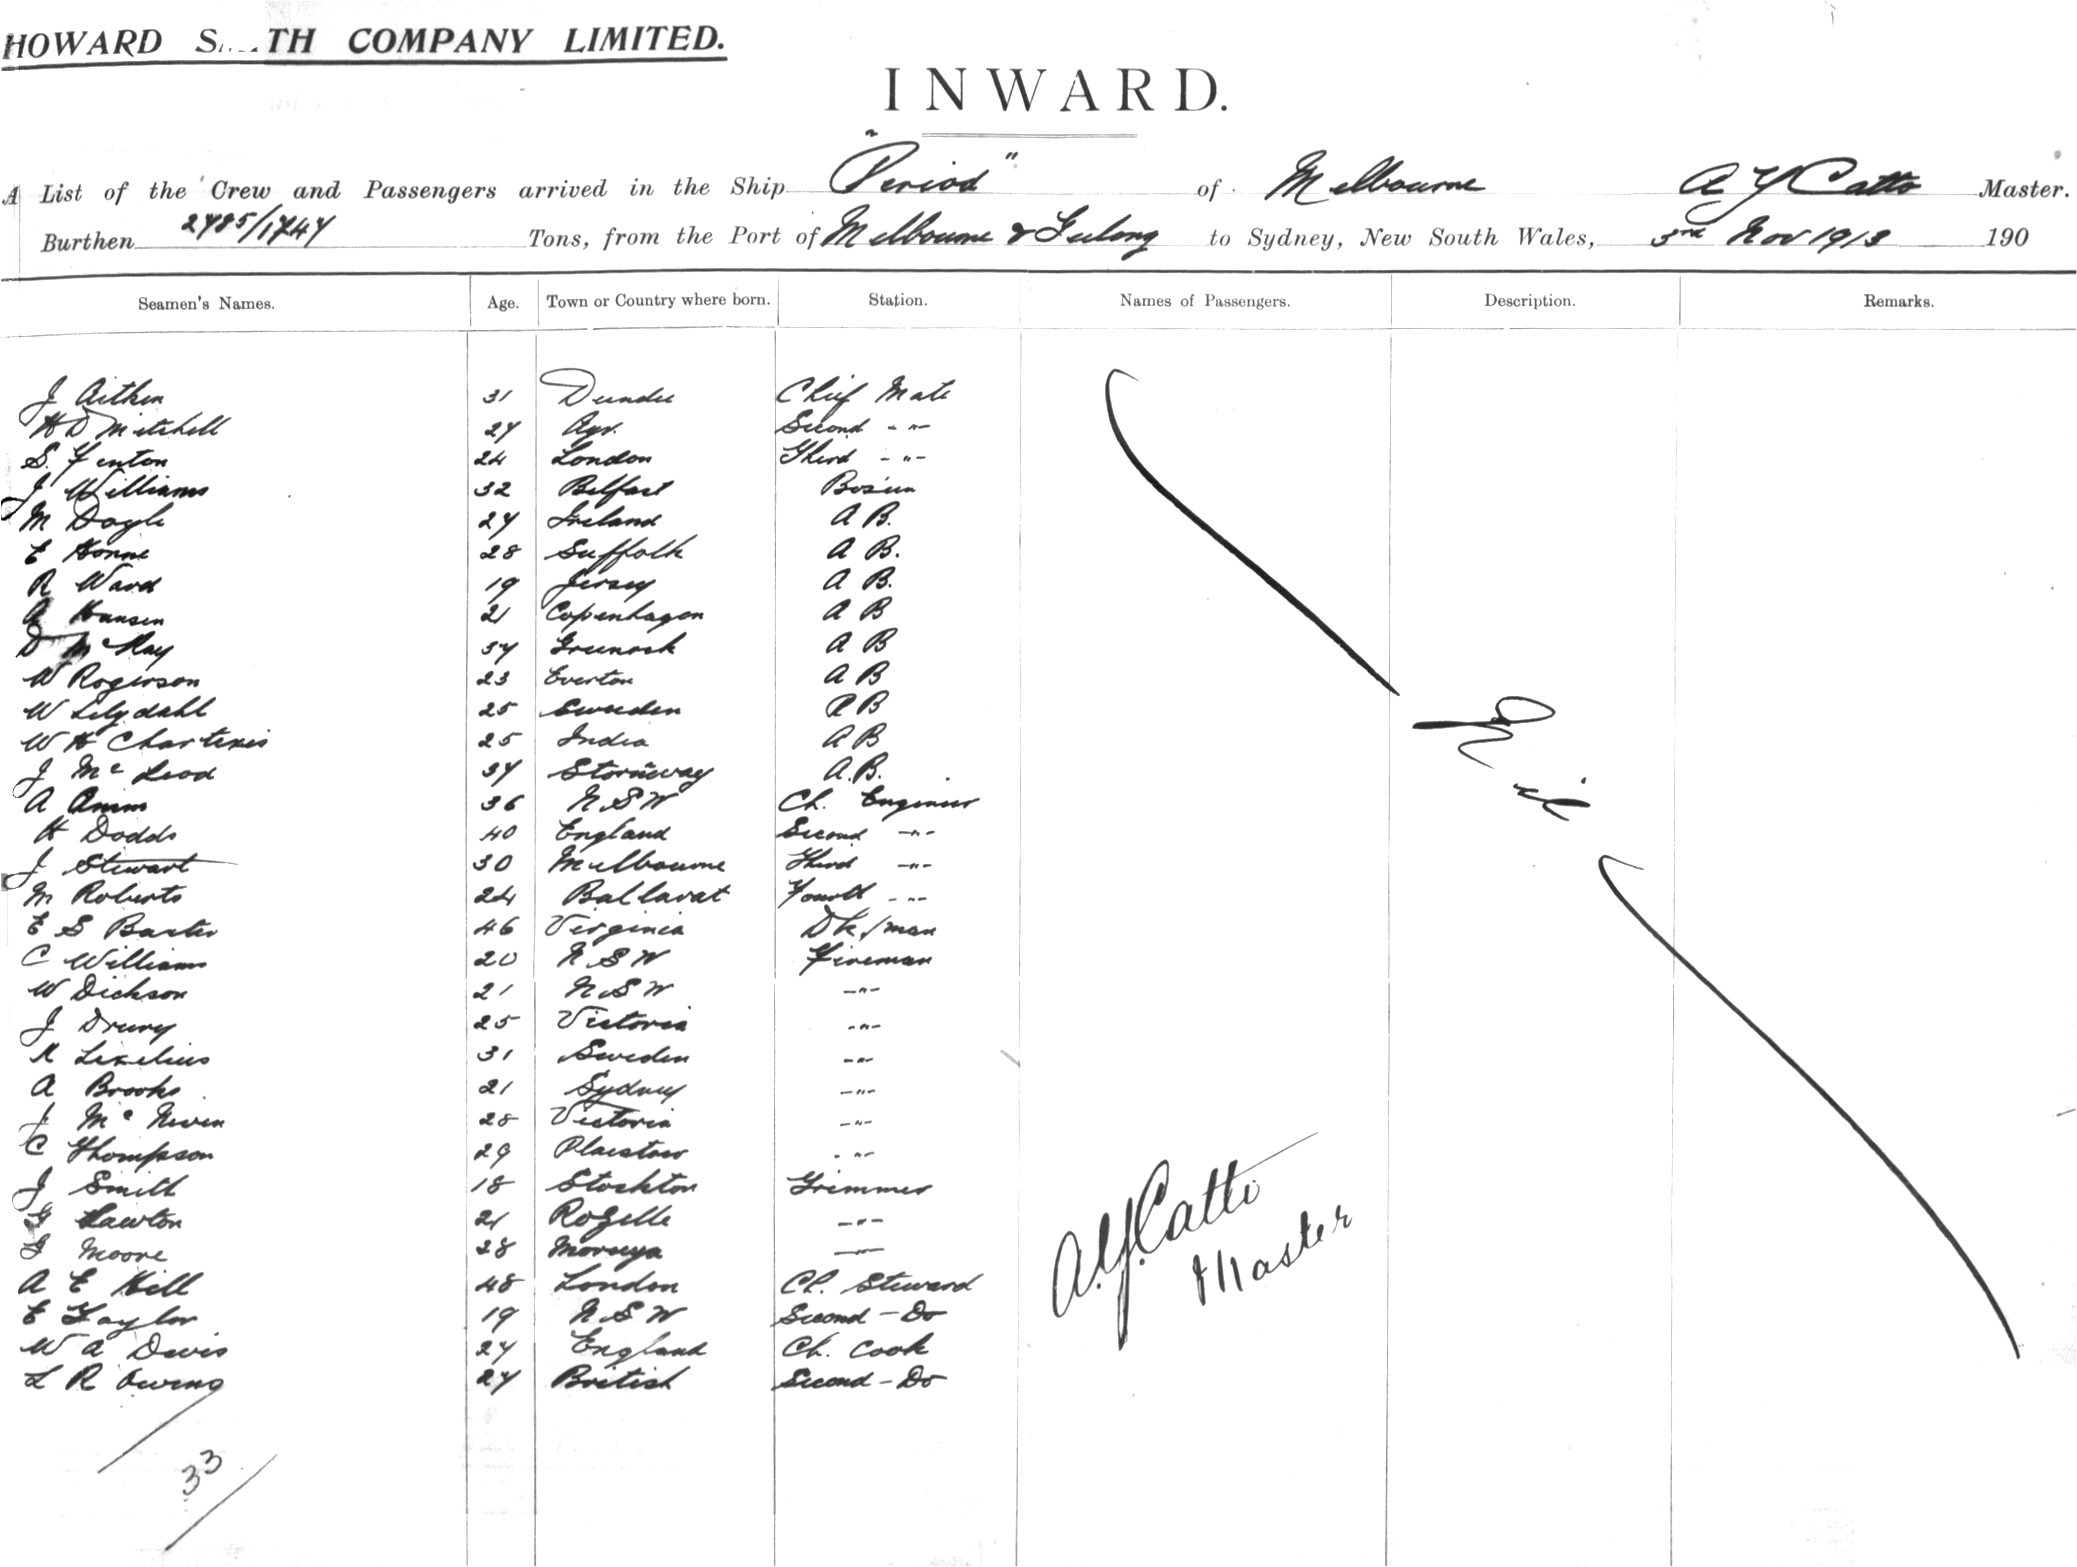 HOWARD S...TH COMPANY LIMITED.
INWARD.
A List of the Crew and Passengers arrived in the Ship "Period" of Melbourne A Y Catto Master.
Burthen 2785/1747 Tons, from the Port of Melbourne & Geelong to Sydney, New South Wales, 3rd Nov 1913 190
Seamen's Names. Age. Town or Country where born. Station. Names of Passengers. Description. Remarks.
J Aitken 31 Dundee Chief Mate
H D Mitchell 27 Ayr. Second - " -
S. Fenton 24 London Third - " -
J Williams 32 Belfast Bos'un
M Doyle 27 Ireland A B.
E Horne 28 Suffolk A B.
R Ward 19 Jersey A B.
A Hansen 21 Copenhagen A B
D McKay 37 Greenock A B
W Rogerson 23 Everton A B
W Liljdahl 25 Sweden A B
W H Charteris 25 India A B
Nil
J McLeod 37 Stornway A.B.
A 36 N S W Ch. Engineer
H Dodds 40 England Second - " -
J Stewart 30 Melbourne Third - " -
M Roberts 24 Ballarat Fourth - " -
E S Baxter 46 Virginia Dk/man
C Williams 20 N S W Fireman
W Dickson 21 N S W - " -
J Drury 25 Victoria - " -
K 31 Sweden - " -
A Brooks 21 Sydney - " -
J McNiven 28 Victoria - " -
C Thompson 29 Plaistow - " -
J Smith 18 Stockton Trimmer
G Lawton 21 Rozelle - " -
G Moore 28 Moruya - " -
A E Hill 48 London Ch. Steward
E Taylor 19 N S W Second - Do
W A Davis 27 England Ch. Cook
L R Owens 27 British Second - Do
A.Y. Catto
Master
33